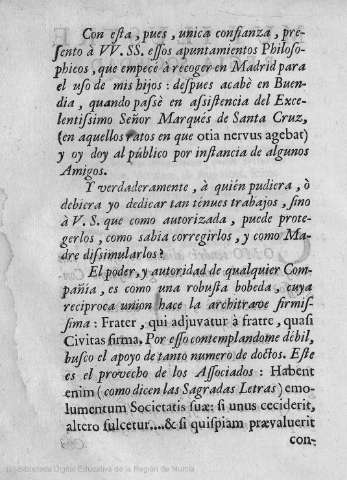 Con esta, pues, unica confianza, pre-
sento à VV. SS. essos apuntamientos Philoso-
phicos, que empecè à recoger en Madrid para
el uso de mis hijos: despues acabè en Buen-
dia, quando passè en assistencia del Exce-
lentissimo Señor Marquès de Santa Cruz,
(en aquellos ratos en que otia nervus agebat)
y oy doy al público por instancia de algunos
Amigos.
Y verdaderamente, à quièn pudiera, ò
debiera yo dedicar tan tenues trabajos, sino
à V. S. que como autorizada, puede prote-
gerlos, como sabia corregirlos, y como Ma-
dre dissimularlos?
El poder, y autoridad de qualquier Com-
pañia, es como una robusta bobeda, cuya
reciproca union hace la architrave firmis-
sima: Frater, qui adjuvatur à fratre, quasi
Civitas firma, Por esso contemplandome dèbil,
busco el apoyo de tanto numero de doctos. Este
es el provecho de los Associados: Habent
enim (como dicen las Sagradas Letras) emo-
lumentum Societatis suæ: si unus ceciderit,
altero fulcetur....& si quispiam prævaluerit
con-
Biblioteca Digital Educativa de la Región de Murcia